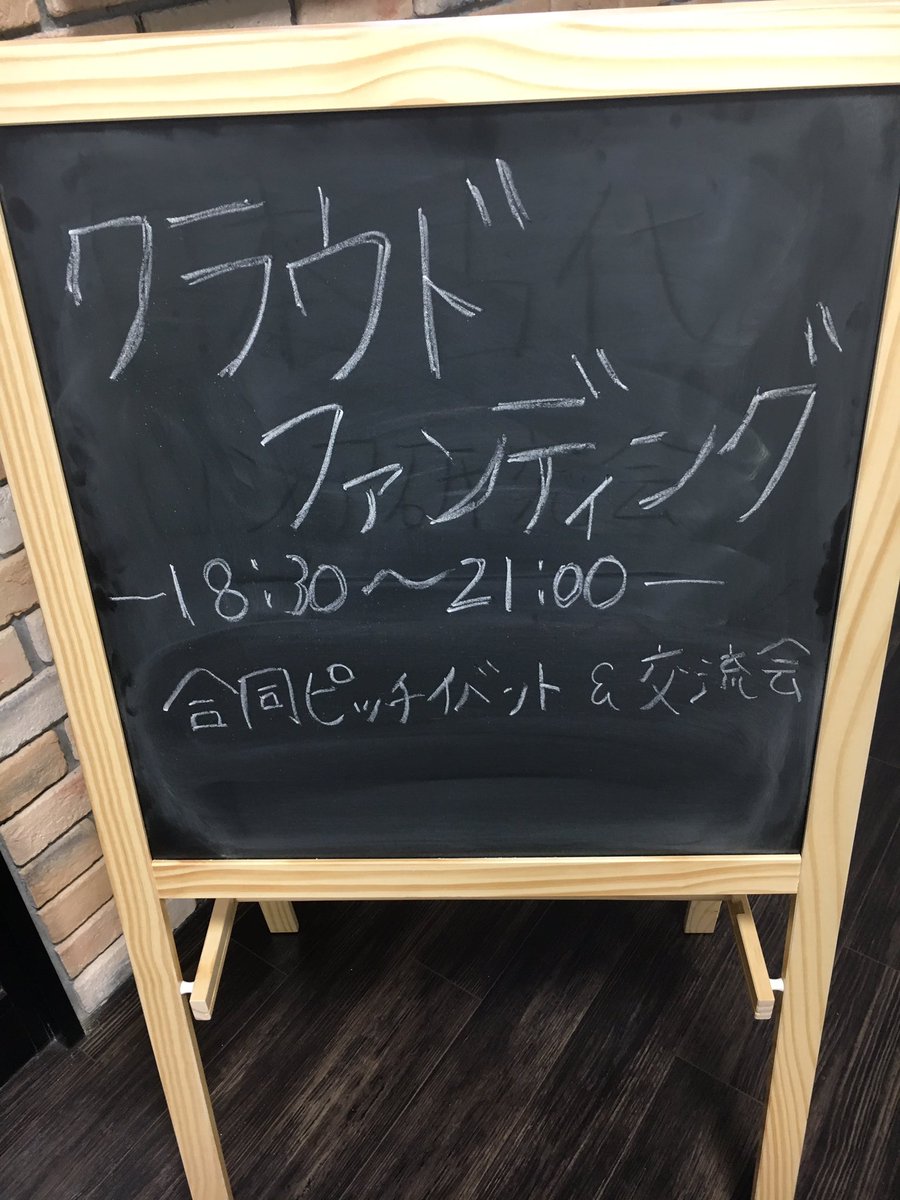 クラウド
ファンディング
―18:30～21:00―
合同ピッチイベント & 交流会